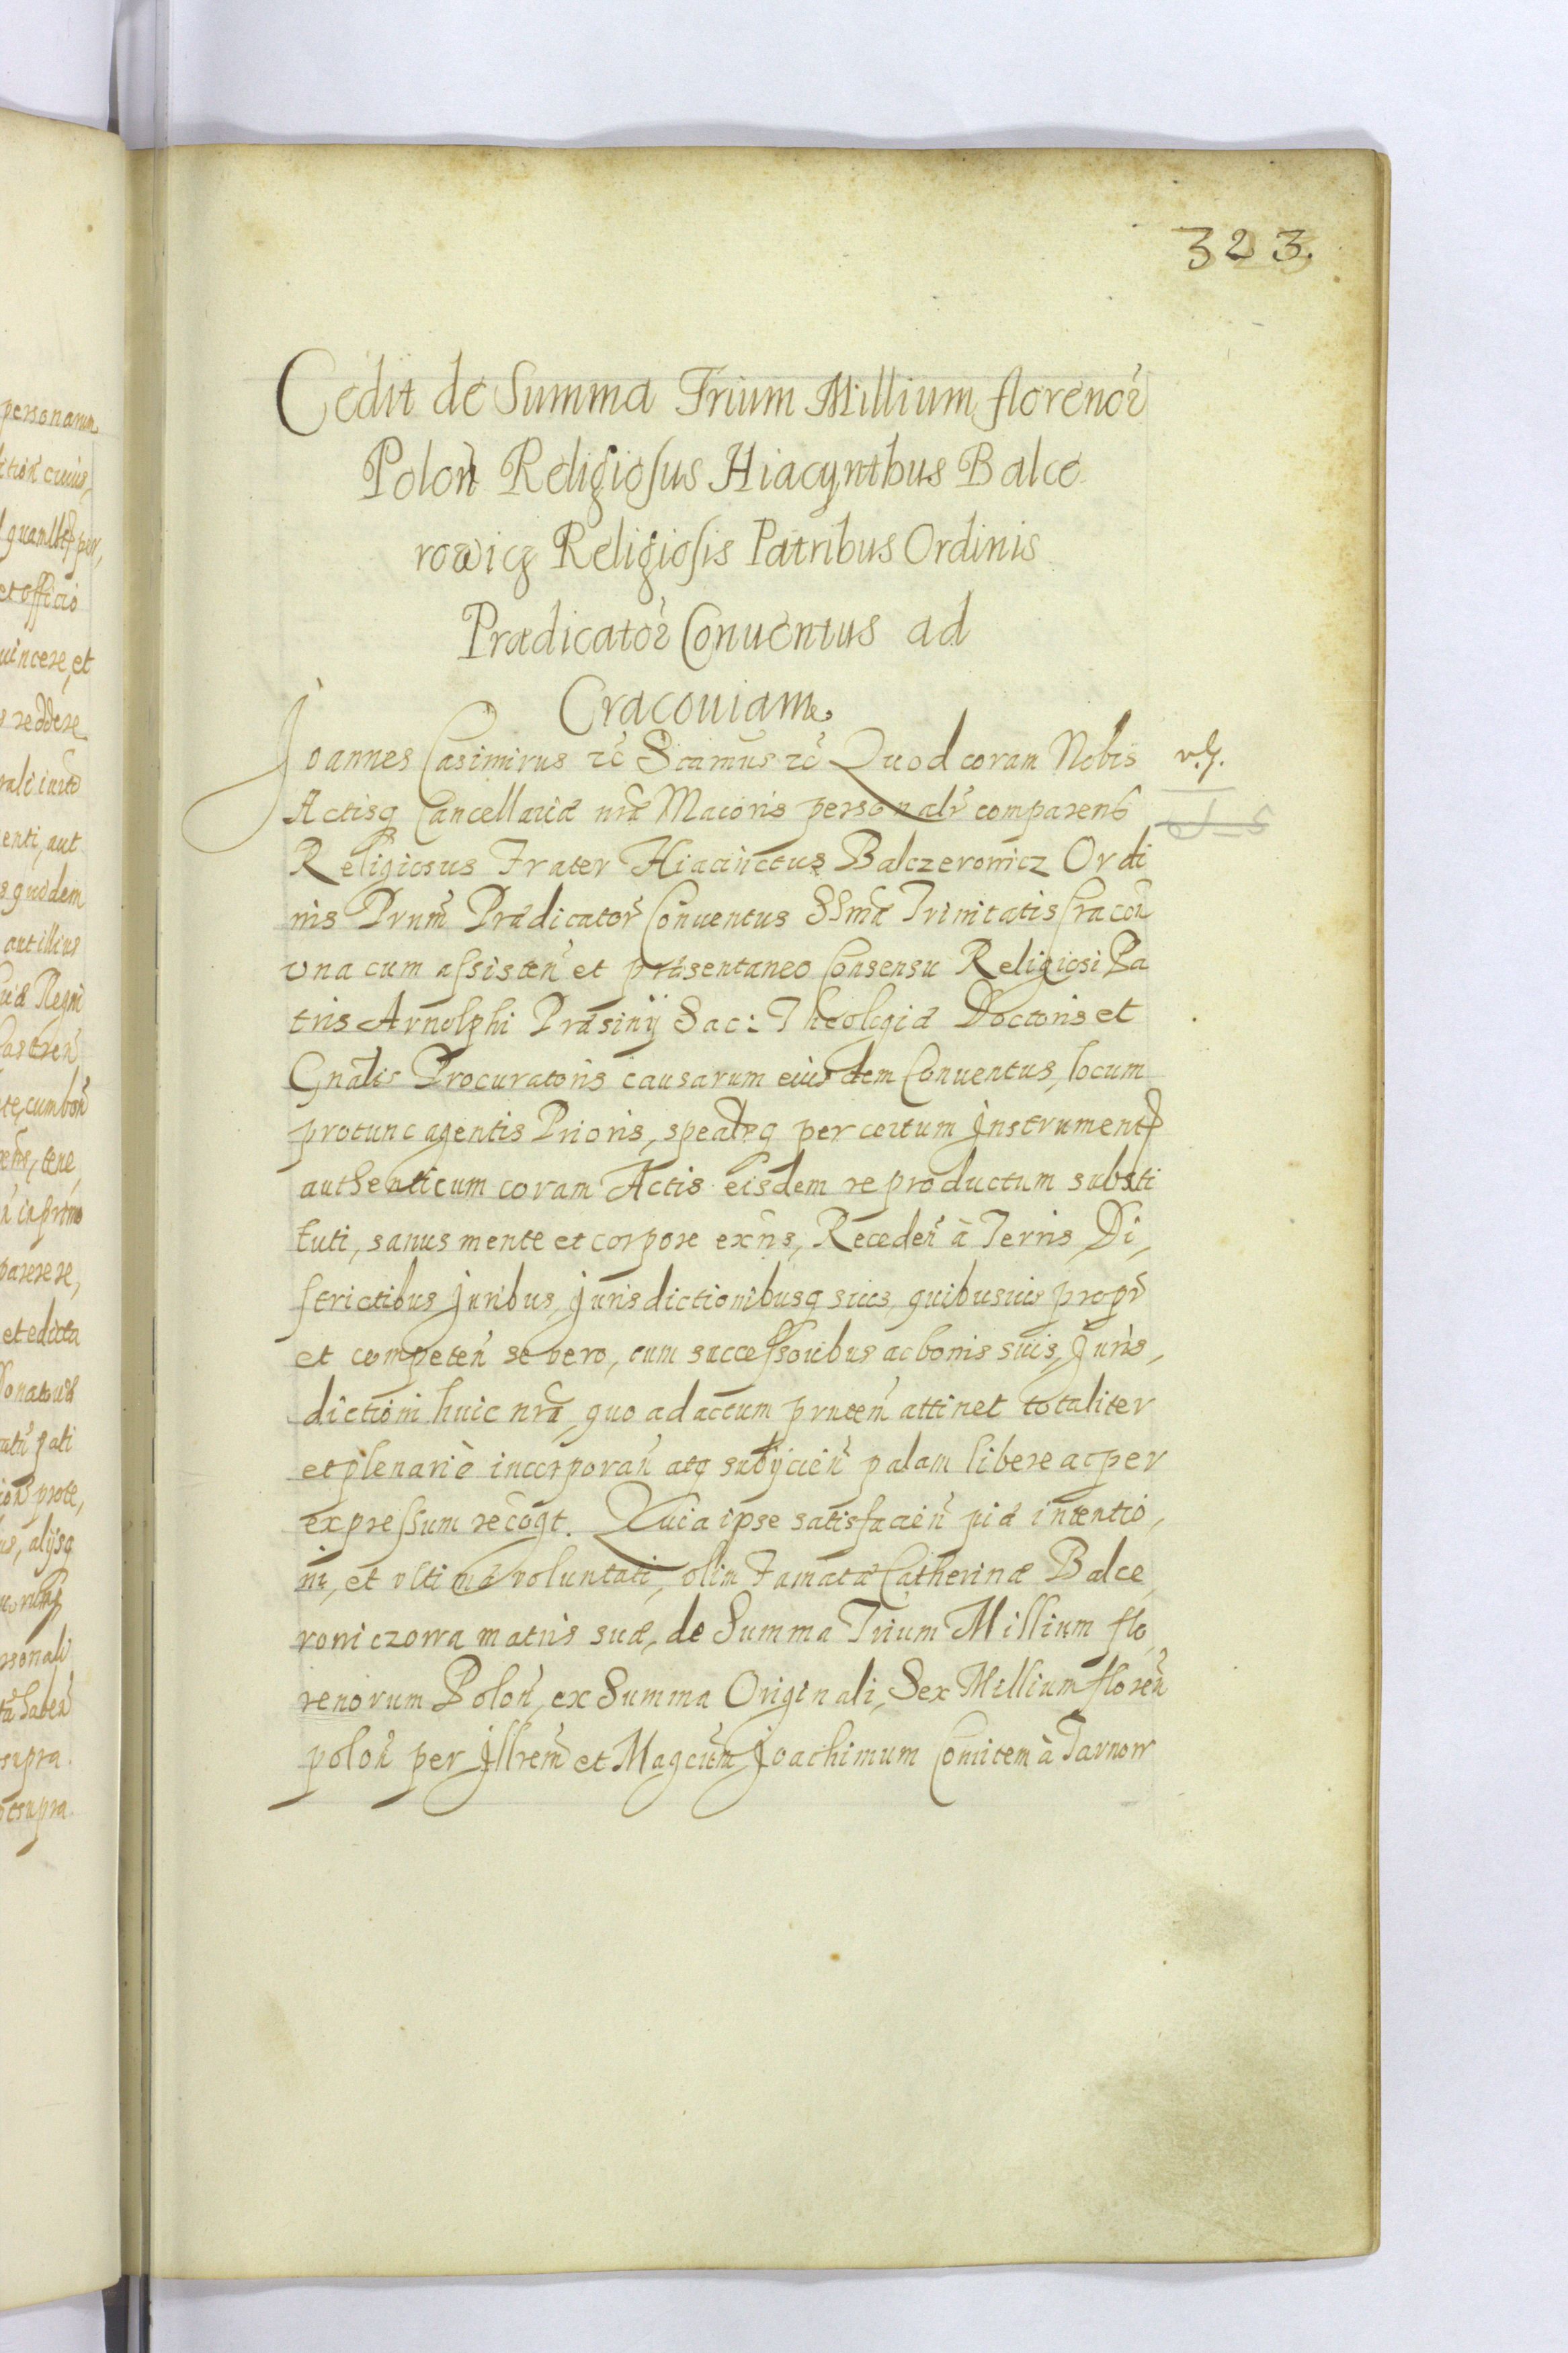 323.
Cedit de Summa Trium Millium florenoꝝ
Polon̄ Religiosus Hiacynthus Balce
rowicz Religiosis Patribus Ordinis
Prædicatoꝝ Conuentus ad
Cracouiam.
Joannes Casimirus ꝛc̄ Sc̄amus ꝛc̄ Quod coram Nobis
v. g.
Actisq̨ Cancellariæ nr̄æ Maioris personalr̄ comparens
Religiosus Frater Hiacinctus Balczerowicz Ordi
nis Prum̄ Prædicator̄ Conuentus SSmæ Trinitatis Cracou̅
vna cum assisten̄ et præsentaneo Consensu Religiosi Pa
tris Arnolphi Præsinij Sac: Theologiæ Doctoris et
Gnālis Procuratoris causarum eiusdem Conuentus, locum
protunc agentis Prioris, spealrq̨ per certum Instrument̄
authenticum coram Actis eisdem reproductum substi
tuti, sanus mente et corpore exn̄s, Receden̄ à Terris, Di,
strictibus Juribus, Jurisdictionibusq̨ suis, quibusuis propr̄
et competen̄ se vero, cum successoribus ac bonis suis, Juris,
dictioni huic nr̄æ, quo ad actum pn̄tem̄ attinet totaliter
et plenariè incorporan̄ atq̨ subÿcien̄ palam libere ac per
expressum recogt. Quia ipse satisfacien̄ piæ intentio,
ni, et vltimæ voluntati, olim Famatæ Catherinæ Balce,
rowiczowa matris suæ, de Summa Trium Millium flo,
renorum Polon̄, ex Summa Originali, Sex Millium floren̄
polon̄ per Jllrem̄ et Magcūm Joachimum Comitem à Tarnow
personarum
et officio
uincere, et
reddere
enti, aut
quidem
aut illius
Regni
et edicta
prote,
us, alijsq̨
supra
vt supra.